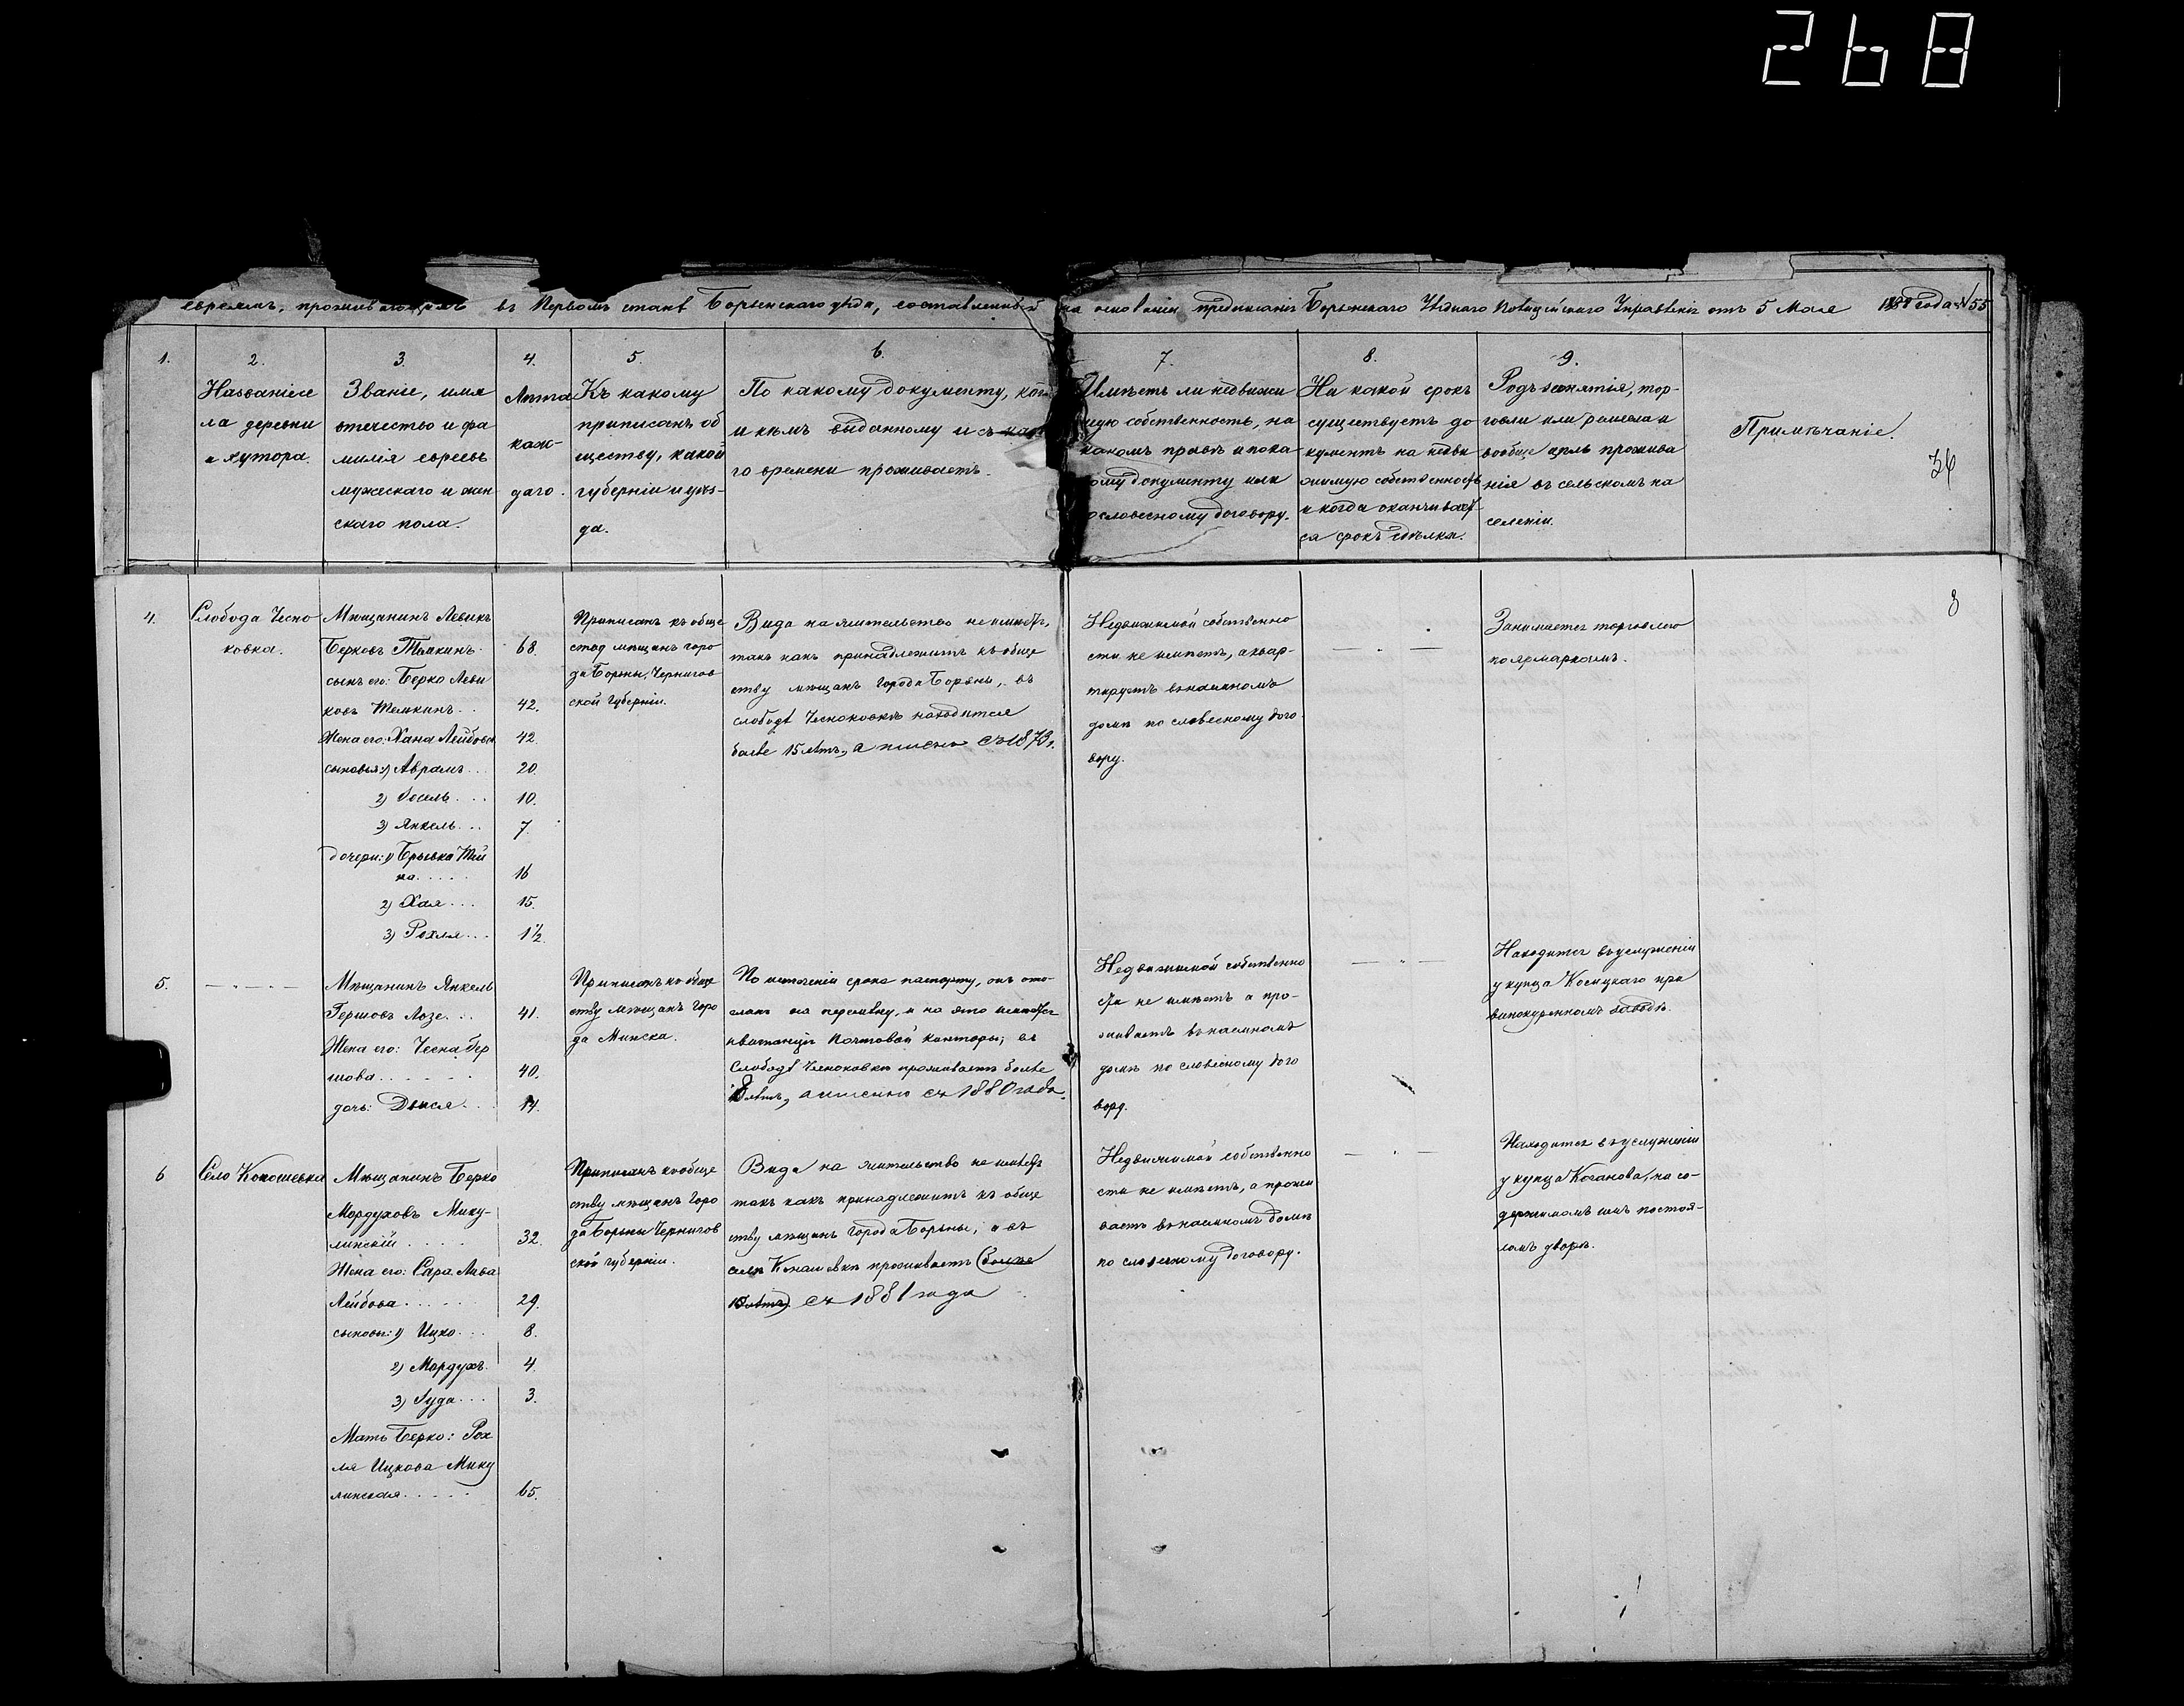 268
евреямъ, проживающимъ въ Первомъ станѣ Борзенскаго уѣзда, составленный на основаніи предписанія Борзенскаго Уѣзднаго Полицейскаго Управленія отъ 5 Мая года № 55
1.
2.
Названіе се
ла деревни
и хутора.
3
Званіе, имя
отечество и фа
милія евреевъ
мужескаго и жен
скаго пола.
4.
Лѣта
каж-
даго.
5.
Къ какому
приписанъ об
ществу, какой
губерніи и уѣз-
да.
6.
По какому документу, когда
и кѣмъ выданному и съ како
го времени проживаетъ.
7.
Имѣетъ ли недвижи
мую собственность, на
какомъ правѣ и по ка
кому документу или
словесному договору.
8.
На какой срокъ
существуетъ до
кументъ на недви
жимую собственность
и когда оканчивает
ся срокъ сдѣлки.
9.
Родъ занятія, тор-
говли или ремесла и
вообще цѣль прожива
нія въ сельскомъ на
селеніи.
Примѣчаніе.
36
8
4.
Слобода Чесно
ковка.
Мѣщанинъ Левикъ
Берковъ Темкинъ. 68.
сынъ его: Берко Леви
ковъ Темкинъ.. 42.
Жена его: Хана Лейбова 42.
сыновья: 1) Абрамъ... 20.
2) Іосель.... 10.
3) Янкель... 7.
дочери: 1) Брывка
ка..... 16
2) Хая... 15.
3) Рохля... 1½.
Приписанъ къ обще
ству мѣщанъ горо
да Борзны, Чернигов
ской губерніи.
Вида на жительство не имѣетъ,
такъ какъ принадлежитъ къ обще
ству мѣщанъ города Борзны, въ
слободѣ Чесноковкѣ находится
болѣе 15 лѣтъ, а именно съ 1873 г.
Недвижимой собственно
сти не имѣетъ, а квар-
тируетъ въ наемномъ
домѣ по словесному дого
вору.
— " —
Занимается торговлею
по ярмаркамъ.
5.
— " —
Мѣщанинъ Янкель
Гершовъ Лозе... 41.
Жена его: Чесна Бер
шова...... 40.
дочь: Двися... 14.
Приписанъ къ обще
ству мѣщанъ горо
да Минска.
По истеченіи срока паспорту, онъ ото-
сланъ на перемѣну, и на это имѣется
квитанція Почтовой конторы; въ
Слободѣ Чесноковкѣ проживаетъ болѣе
8 лѣтъ, а именно съ 1880 года.
Недвижимой собственно
сти не имѣетъ а про-
живаетъ въ наемномъ
домѣ по словесному дого
вору.
— " —
Находится въ услуженіи
у купца при
винокуренномъ заводѣ.
6
Село Кокошевка
Мѣщанинъ Берко
Мордуховъ Мику-
линскій.... 32.
Жена его: Сара Лива
Лейбова..... 29.
сыновья: 1) Ицко... 8.
2) Мордухъ. 4.
3) Іуда... 3.
Мать Берко: Рох
ля Ицкова Мику
линская..... 65.
Приписанъ къ обще
ству мѣщанъ горо
да Борзны Чернигов
ской губерніи.
Вида на жительство не имѣетъ
такъ какъ принадлежитъ къ обще
ству мѣщанъ города Борзны, а въ
селѣ проживаетъ (болѣе
лѣтъ) съ 1881 года
Недвижимой собственно
сти не имѣетъ, а прожи
ваетъ въ наемномъ домѣ
по словесному договору.
— " —
Находится въ услуженіи
у купца Коганова, на со-
держимомъ имъ постоя-
ломъ дворѣ.